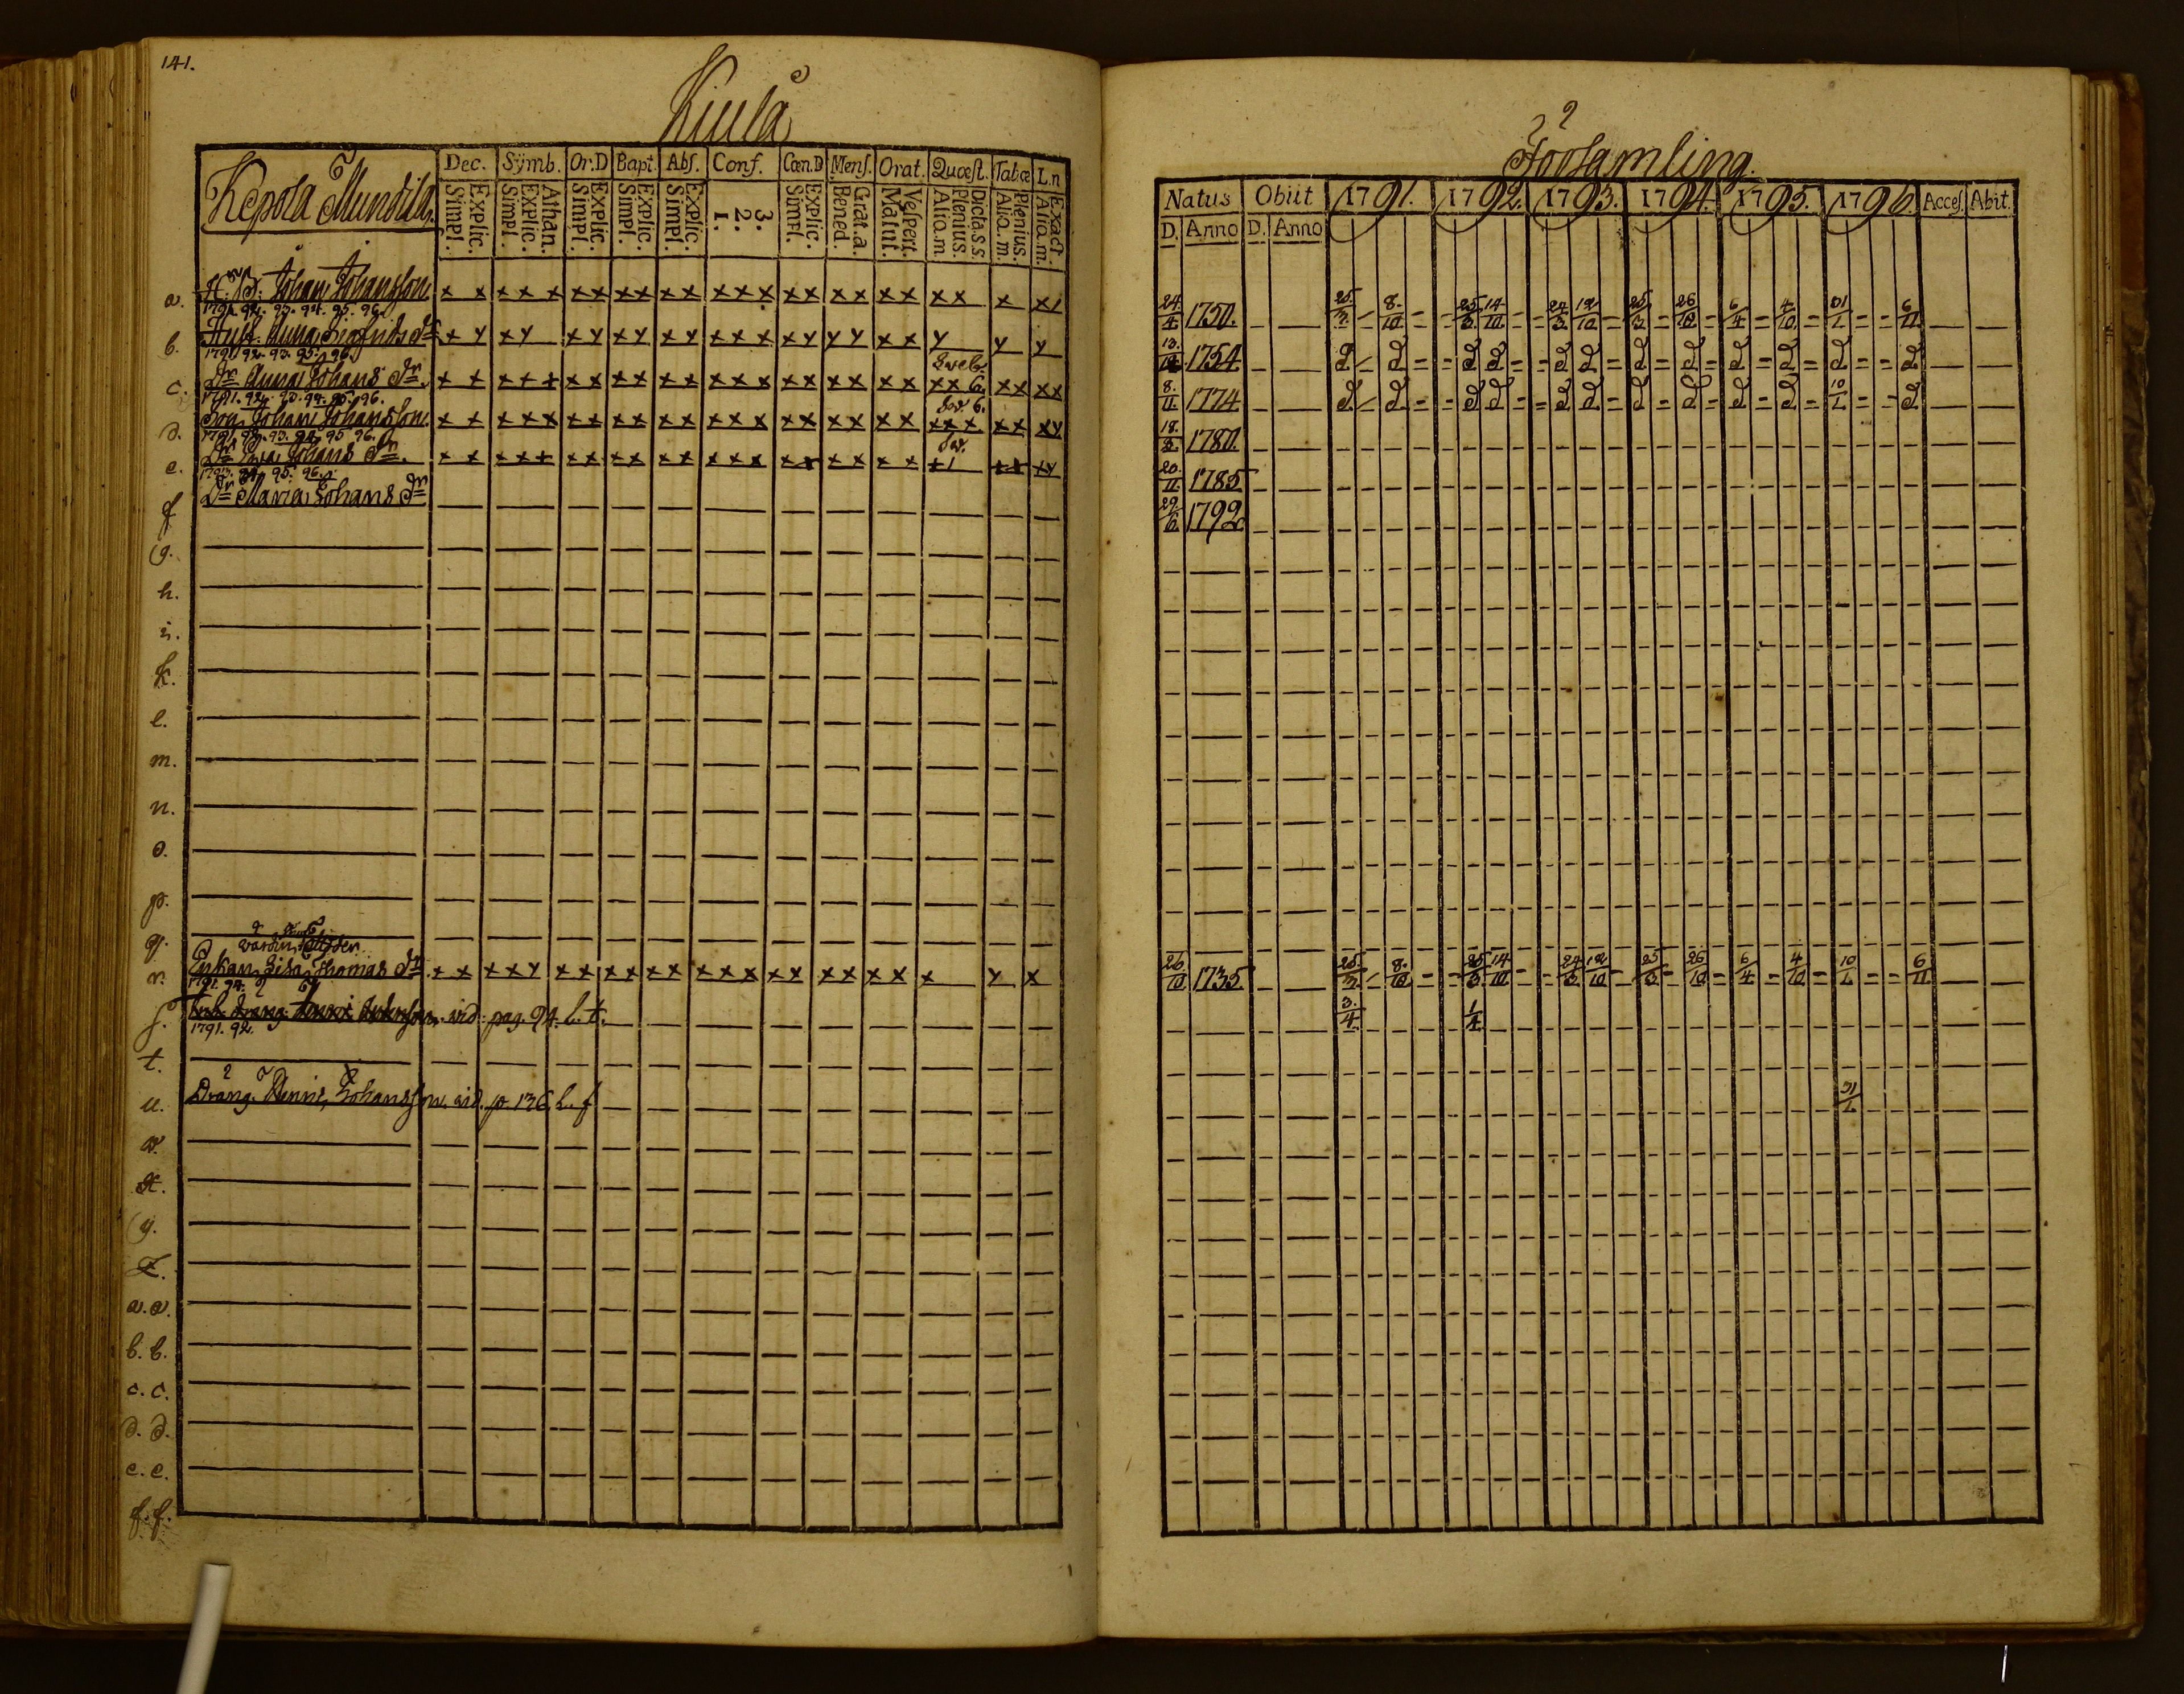 141.
Kiula
Kepola Mundila.
Dec. Sÿmb. Or.D Bapt. Abs. Conf. Cœn.D Mens. Orat. Quœst. Tabœ L.n
Simpl. Explic. Simpl. Explic. Athan. Simpl. Explic. Simpl. Explic. Simpl. Explic. 1. 2. 3. Simpl. Explic. Bened. Grat.a. Matut. Vespert. Alio.m Plenius. Dicta.s.s. Alio.m. Plenius. Alio.m. Exact.
a. Johan Johansson x x x x x x x x x x x x x x x x x x x x x x x
1791. 92. 93. 94. 95. 96.
b. Hust. Anna Sigfrids dr x y x y x y x y x y x x x x y y y x x y y y
1791. 92. 93. 95. 96.
c. Dr Anna Johans dr. x x x x + x x x x x x x x x x x x x x x x x 6. x x x x
1791. 92. 93. 94. 95. 96.
d. Son Johan Johansson x x x x x x x x x x x x x x x x x x x x x x x x x x y
1791. 92. 93. 94. 95. 96.
e. Dr Johans dr. x x x x + x x x x x x x x x x x x x x x
95. 96.
f Dr Maria Johans dr
g.
h.
i.
k.
l.
m.
n.
o.
p.
q.
r. Enkan Lisa Thomas dr x x x x y x x x x x x x x x x x x x x x x y x
1791. 94.
s. vid. pag. 94. L. t.
1791. 92.
t.
u. Dräng. Johansson. vid. p 136. L. f
w.
x.
y.
z.
a.a.
b.b.
c.c.
d.d.
e.e.
f.f.
Församling.
Natus Obiit 1791. 1792. 1793. 1794. 1795. 1796. Acces. Abit.
D. Anno D. Anno
24/4 1750. 25/3 8./10 25/3 14/10 24/3 12/10 25/3 26/10 6/4 4/10 31/1 6/11
1754
8./11 1774 10/1
18./3. 1780.
20./11 1785
29/6. 1792
26/10 1735 25/3 8./10 25/3 14/10 24/3 12/10 25/3 26/10 6/4 4/10 10/1 6/11
3./4. 1/4
31/1